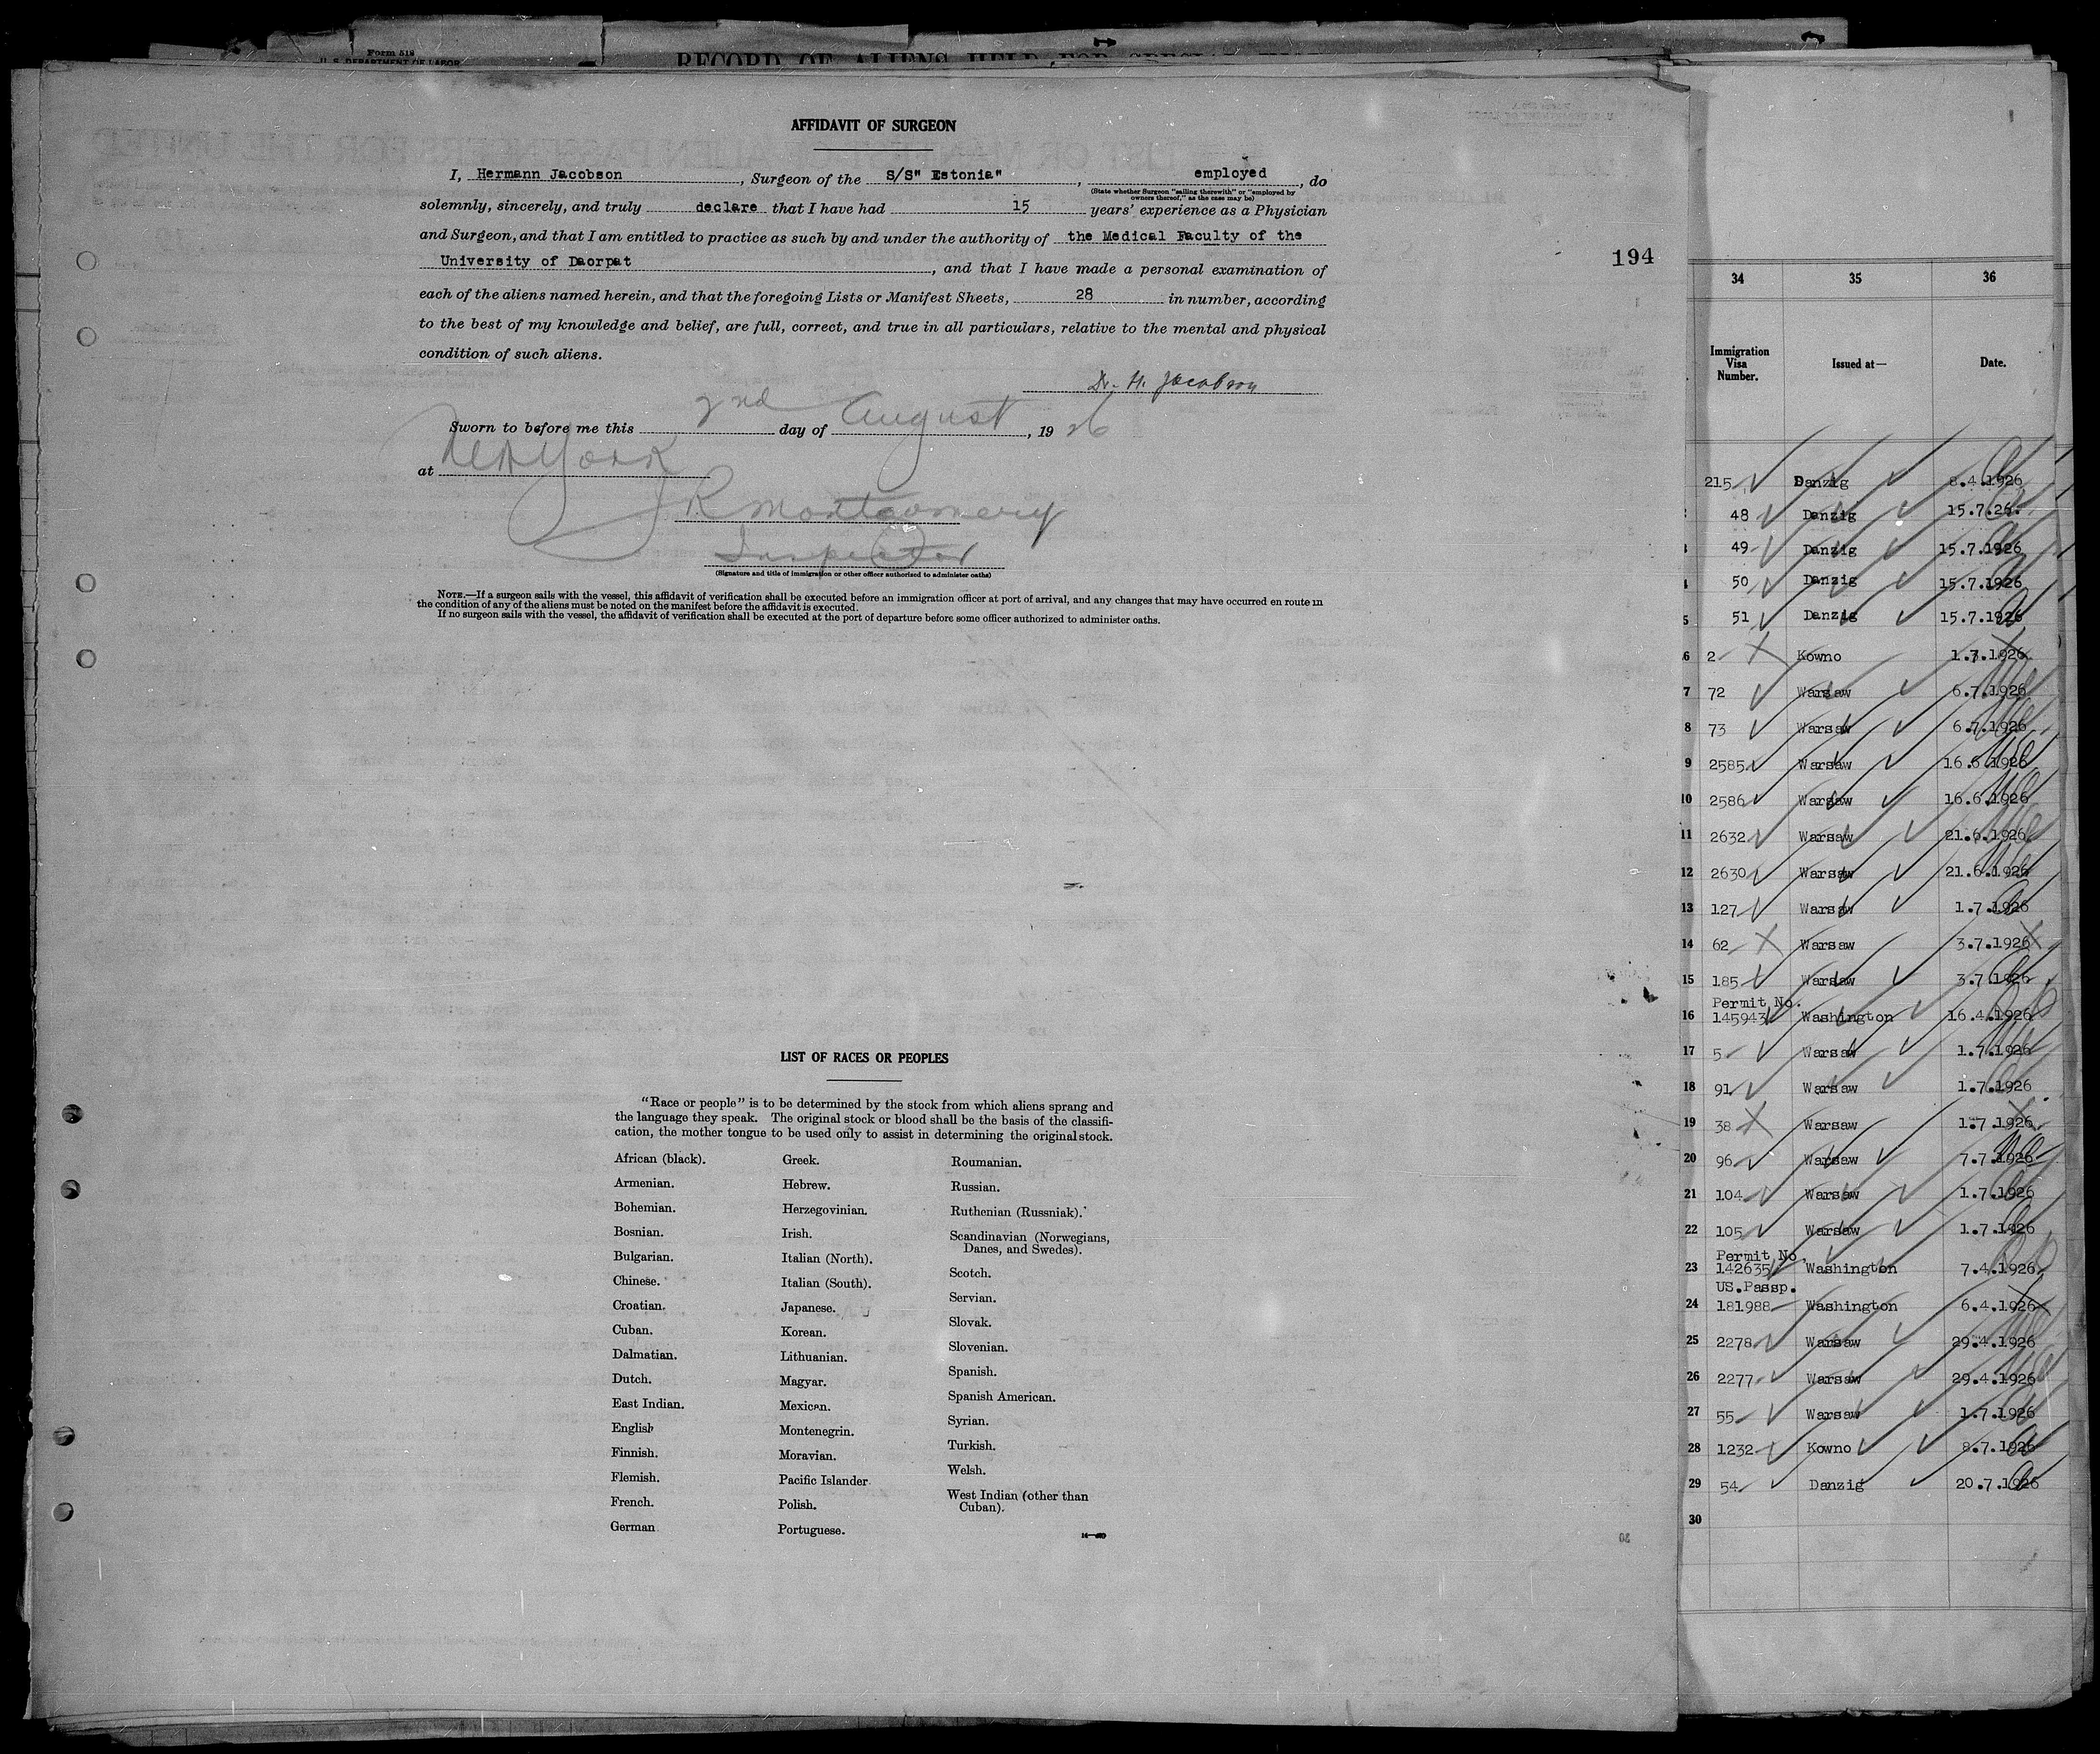 Form 518
U. S. DEPARTMENT OF LABOR
RECORD OF ALIENS HELD FOR SPECIAL
AFFIDAVIT OF SURGEON
I, Hermann Jacobson, Surgeon of the S/S" Estonia", employed, do
(State whether Surgeon "sailing therewith" or "employed by
owners thereof," as the case may be)
solemnly, sincerely, and truly declare that I have had 15 years' experience as a Physician
and Surgeon, and that I am entitled to practice as such by and under the authority of the Medical Faculty of the
University of Daorpat, and that I have made a personal examination of
each of the aliens named herein, and that the foregoing Lists or Manifest Sheets, 28 in number, according
to the best of my knowledge and belief, are full, correct, and true in all particulars, relative to the mental and physical
condition of such aliens.
Dr. H. Jacobson
Sworn to before me this 2nd day of August, 1926
at New York
J R Montgomery
Inspector
(Signature and title of immigration or other officer authorized to administer oaths)
NOTE.—If a surgeon sails with the vessel, this affidavit of verification shall be executed before an immigration officer at port of arrival, and any changes that may have occurred en route in
the condition of any of the aliens must be noted on the manifest before the affidavit is executed.
If no surgeon sails with the vessel, the affidavit of verification shall be executed at the port of departure before some officer authorized to administer oaths.
194
LIST OF RACES OR PEOPLES
"Race or people" is to be determined by the stock from which aliens sprang and
the language they speak. The original stock or blood shall be the basis of the classifi-
cation, the mother tongue to be used only to assist in determining the original stock.
African (black).
Armenian.
Bohemian.
Bosnian.
Bulgarian.
Chinese.
Croatian.
Cuban.
Dalmatian.
Dutch.
East Indian.
English
Finnish.
Flemish.
French.
German
Greek.
Hebrew.
Herzegovinian.
Irish.
Italian (North).
Italian (South).
Japanese.
Korean.
Lithuanian.
Magyar.
Mexican.
Montenegrin.
Moravian.
Pacific Islander
Polish.
Portuguese.
Roumanian.
Russian.
Ruthenian (Russniak).
Scandinavian (Norwegians,
Danes, and Swedes).
Scotch.
Servian.
Slovak.
Slovenian.
Spanish.
Spanish American.
Syrian.
Turkish.
Welsh.
West Indian (other than
Cuban).
34 35 36
Immigration
Visa
Number.
Issued at—
Date.
215 Danzig 8.4.1926
48 Danzig 15.7.26.
49 Danzig 15.7.1926
50 Danzig 15.7.1926
5 51 Danzig 15.7.1926
6 2 Kowno 1.7.1926
7 72 Warsaw 6.7.1926
8 73 Warsaw 6.7.1926
9 2585 Warsaw 16.6.1926
10 2586 Warsaw 16.6.1926
11 2632 Warsaw 21.6.1926
12 2630 Warsaw 21.6.1926
13 127 Warsaw 1.7.1926
14 62 Warsaw 3.7.1926
15 185 Warsaw 3.7.1926
Permit No.
16 145943 Washington 16.4.1926
17 5 Warsaw 1.7.1926
18 91 Warsaw 1.7.1926
19 38 Warsaw 1.7.1926
20 96 Warsaw 7.7.1926
21 104 Warsaw 1.7.1926
22 105 Warsaw 1.7.1926
Permit No.
23 142635 Washington 7.4.1926
US.Passp.
24 181988 Washington 6.4.1926
25 2278 Warsaw 29.4.1926
26 2277 Warsaw 29.4.1926
27 55 Warsaw 1.7.1926
28 1232 Kowno 8.7.1926
29 54 Danzig 20.7.1926
30